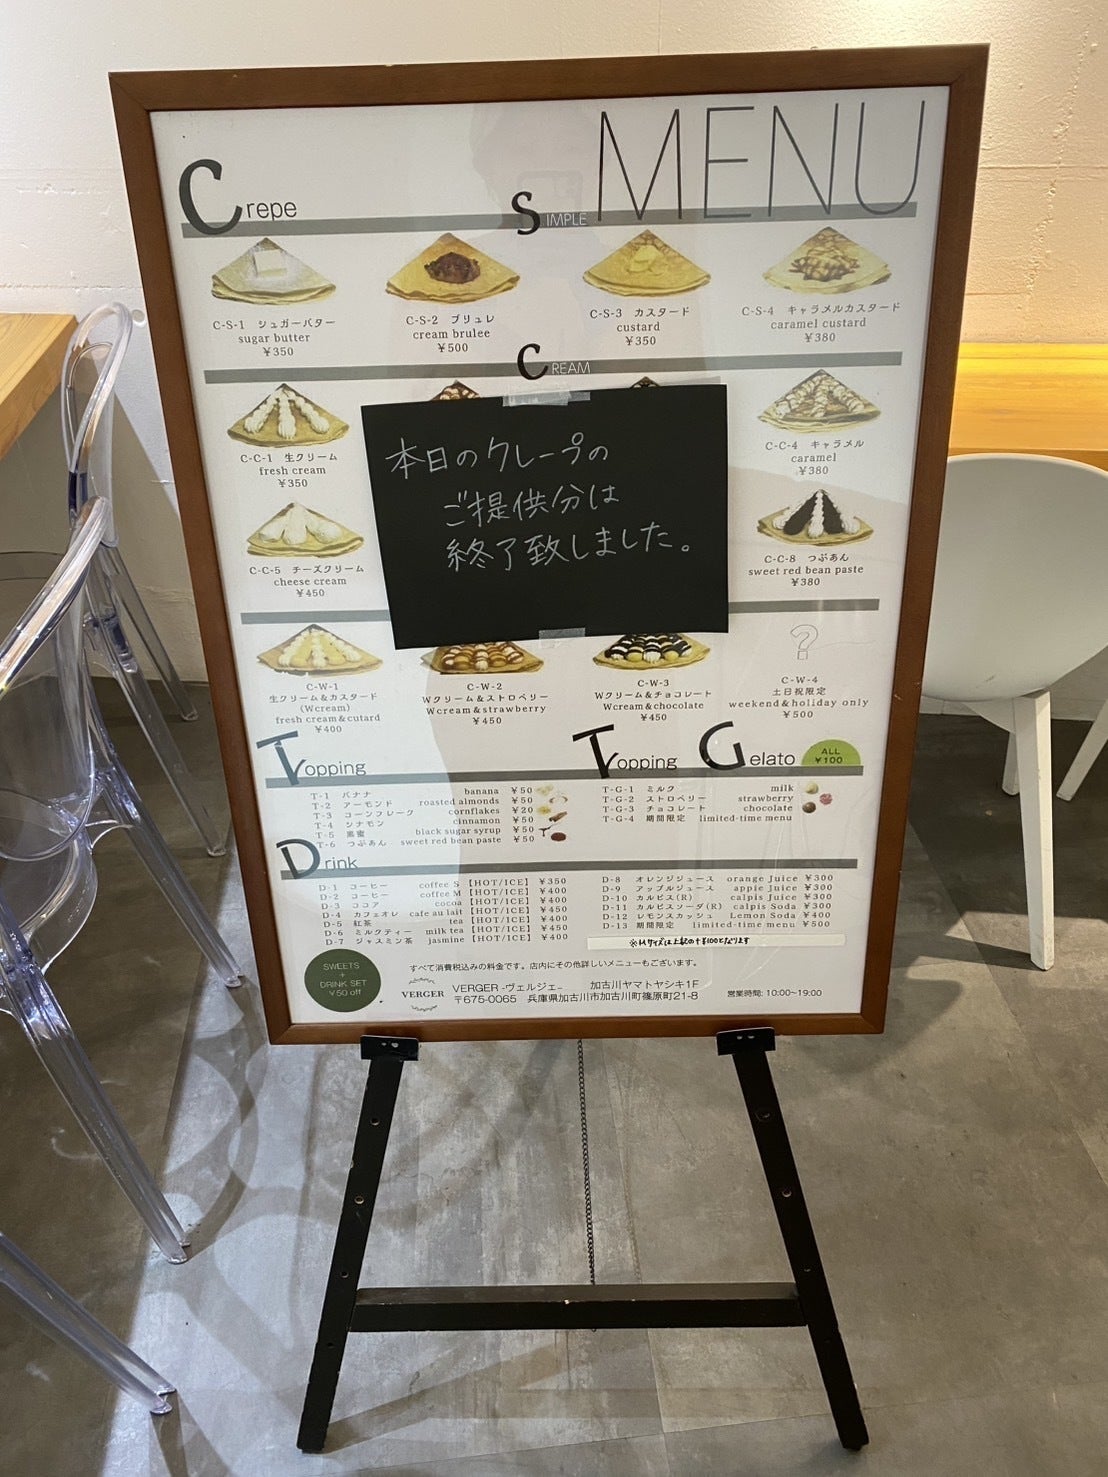 MENU
Crepe
SIMPLE
C-S-1 シュガーバター
sugar butter
¥350
C-S-2 ブリュレ
cream brulee
¥500
C-S-3 カスタード
custard
¥350
C-S-4 キャラメルカスタード
caramel custard
¥380
CREAM
C-C-1 生クリーム
fresh cream
¥350
C-C-4 キャラメル
caramel
¥380
本日のクレープの
ご提供分は
終了致しました。
C-C-5 チーズクリーム
cheese cream
¥450
C-C-8 つぶあん
sweet red bean paste
¥380
C-W-1
生クリーム&カスタード
(Wcream)
fresh cream&cutard
¥400
C-W-2
Wクリーム&ストロベリー
Wcream&strawberry
¥450
C-W-3
Wクリーム&チョコレート
Wcream&chocolate
¥450
?
C-W-4
土日祝限定
weekend&holiday only
¥500
Topping
T-1 バナナ banana ¥50
T-2 アーモンド roasted almonds ¥50
T-3 コーンフレーク cornflakes ¥20
T-4 シナモン cinnamon ¥50
T-5 黒蜜 black sugar syrup ¥50
T-6 つぶあん sweet red bean paste ¥50
Topping Gelato
ALL
¥100
T-G-1 ミルク milk
T-G-2 ストロベリー strawberry
T-G-3 チョコレート chocolate
T-G-4 期間限定 limited-time menu
Drink
D-1 コーヒー coffee S 【HOT/ICE】 ¥350
D-2 コーヒー coffee M 【HOT/ICE】 ¥400
D-3 ココア cocoa 【HOT/ICE】 ¥400
D-4 カフェオレ cafe au lait 【HOT/ICE】 ¥450
D-5 紅茶 tea 【HOT/ICE】 ¥400
D-6 ミルクティー milk tea 【HOT/ICE】 ¥450
D-7 ジャスミン茶 jasmine 【HOT/ICE】 ¥400
D-8 オレンジジュース orange Juice ¥300
D-9 アップルジュース appie Juice ¥300
D-10 カルピス(R) calpis Juice ¥300
D-11 カルピスソーダ(R) calpis Soda ¥300
D-12 レモンスカッシュ Lemon Soda ¥400
D-13 期間限定 limited-time menu ¥500
※Mサイズは上記の+¥100になります
SWEETS
+
DRINK SET
¥50 off
すべて消費税込みの料金です。店内にその他詳しいメニューもございます。
VERGER
VERGER -ヴェルジェ- 加古川ヤマトヤシキ1F
〒675-0065 兵庫県加古川市加古川町篠原町21-8
営業時間: 10:00~19:00